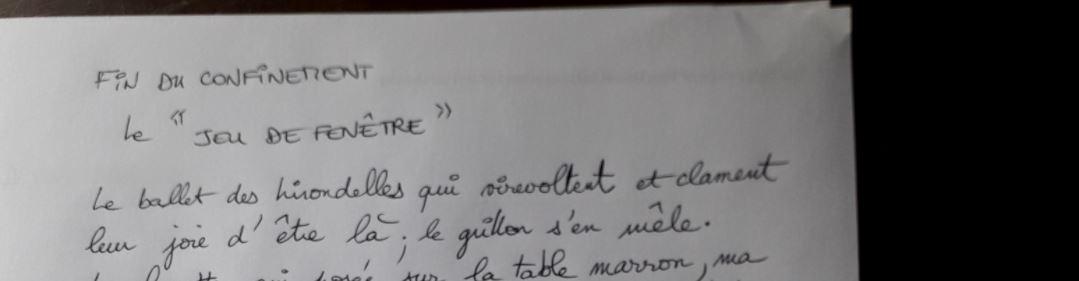 FIN DU CONFINEMENT
Le "JEU DE FENÊTRE"
Le ballet des hirondelles qui virevoltent et clament
leur joie d'être là ; le grillon s'en mêle.
sur la table marron, ma